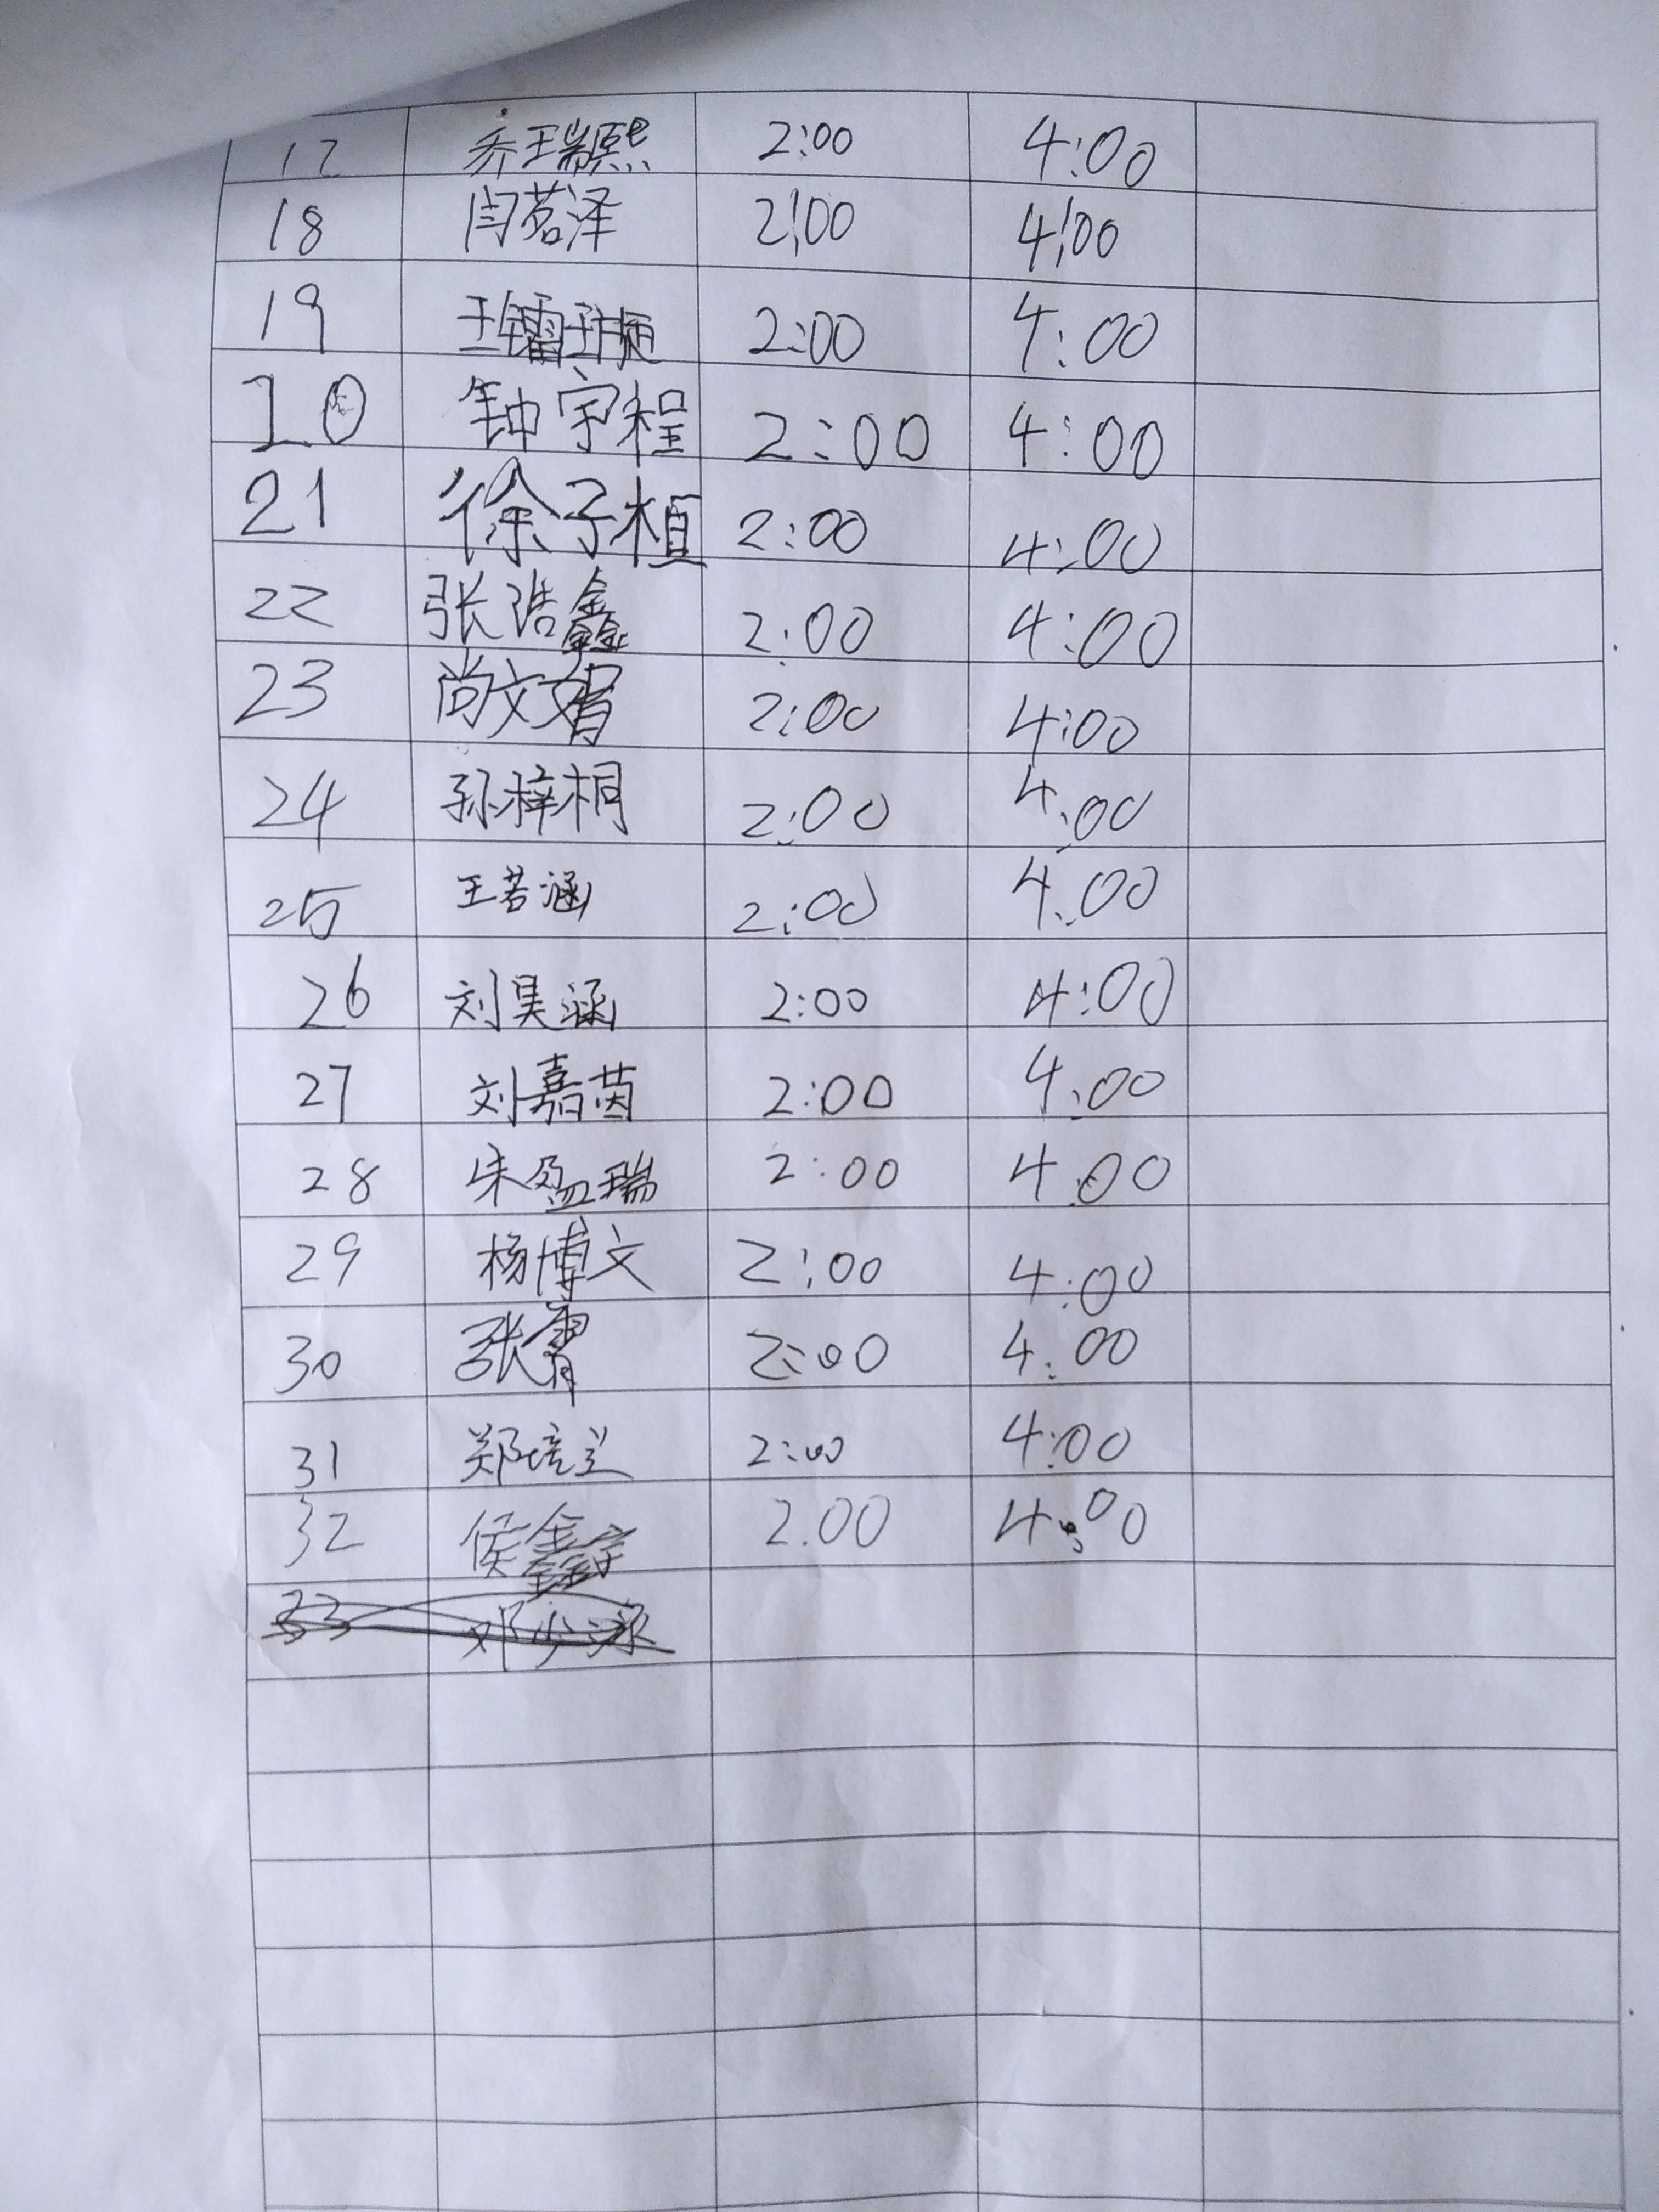 17 乔瑞熙 2:00 4:00
18 闫茗泽 2:00 4:00
19 2:00 4:00
20 钟宇程 2:00 4:00
21 徐子植 2:00 4:00
22 张浩鑫 2:00 4:00
23 尚文婿 2:00 4:00
24 孙梓桐 2:00 4:00
25 王若涵 2:00 4:00
26 刘昊涵 2:00 4:00
27 刘嘉茵 2:00 4:00
28 朱盈瑞 2:00 4:00
29 杨博文 2:00 4:00
30 张 2:00 4:00
31 郑培兰 2:00 4:00
32 侯鑫宇 2.00 4:00
33 邓少泳